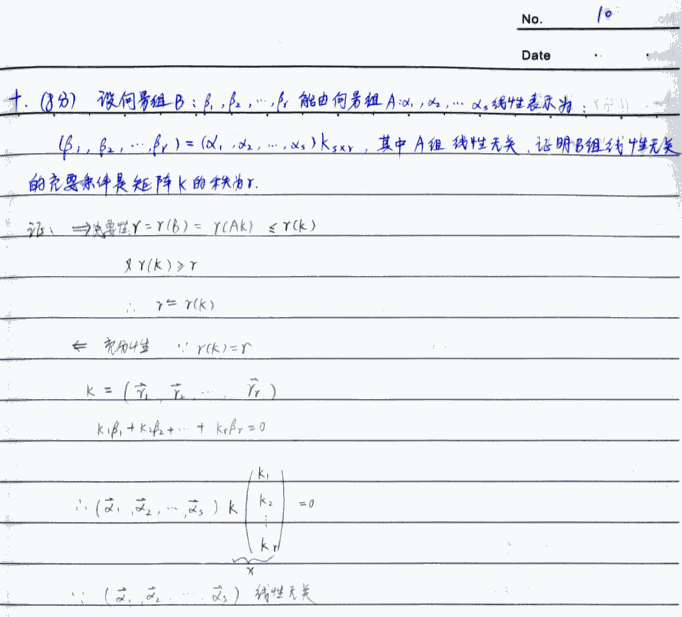 No. 10
Date
十. (8分) 设向量组B: β₁, β₂, ⋯, βr 能由向量组A: α₁, α₂, ⋯ αs 线性表示为:
(β₁, β₂, ⋯, βr) = (α₁, α₂, ⋯, αs) k s×r, 其中A组线性无关, 证明B组线性无关
的充要条件是矩阵k的秩为r.
证: ⇒ 必要性 r = r(B) = r(Ak) ≤ r(k)
又 r(k) ≥ r
∴ r = r(k)
⇐ 充分性 ∵ r(k) = r
k = (r⃗₁, r⃗₂, ⋯, r⃗r)
k₁β₁ + k₂β₂ + ⋯ + krβr = 0
∴ (α⃗₁, α⃗₂, ⋯, α⃗s) k (k₁ k₂ ⋮ kr) = 0
x
∵ (α⃗₁, α⃗₂, ⋯ α⃗s) 线性无关